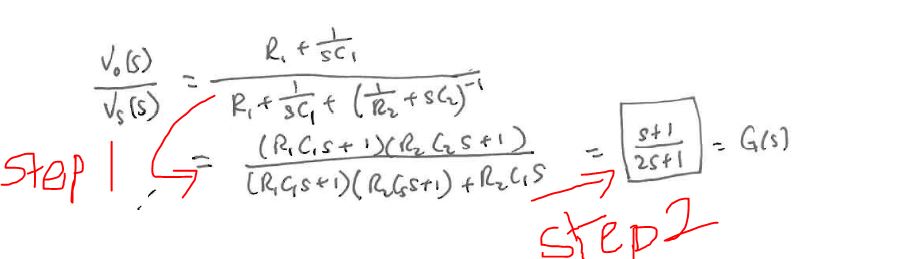 V₀(s)/Vₛ(s) = (R₁ + 1/(sC₁)) / (R₁ + 1/(sC₁) + (1/R₂ + sC₂)⁻¹)
Step 1
= (R₁C₁s + 1)(R₂C₂s + 1) / ((R₁C₁s + 1)(R₂C₂s + 1) + R₂C₁s) = (s+1)/(2s+1) = G(s)
Step 2